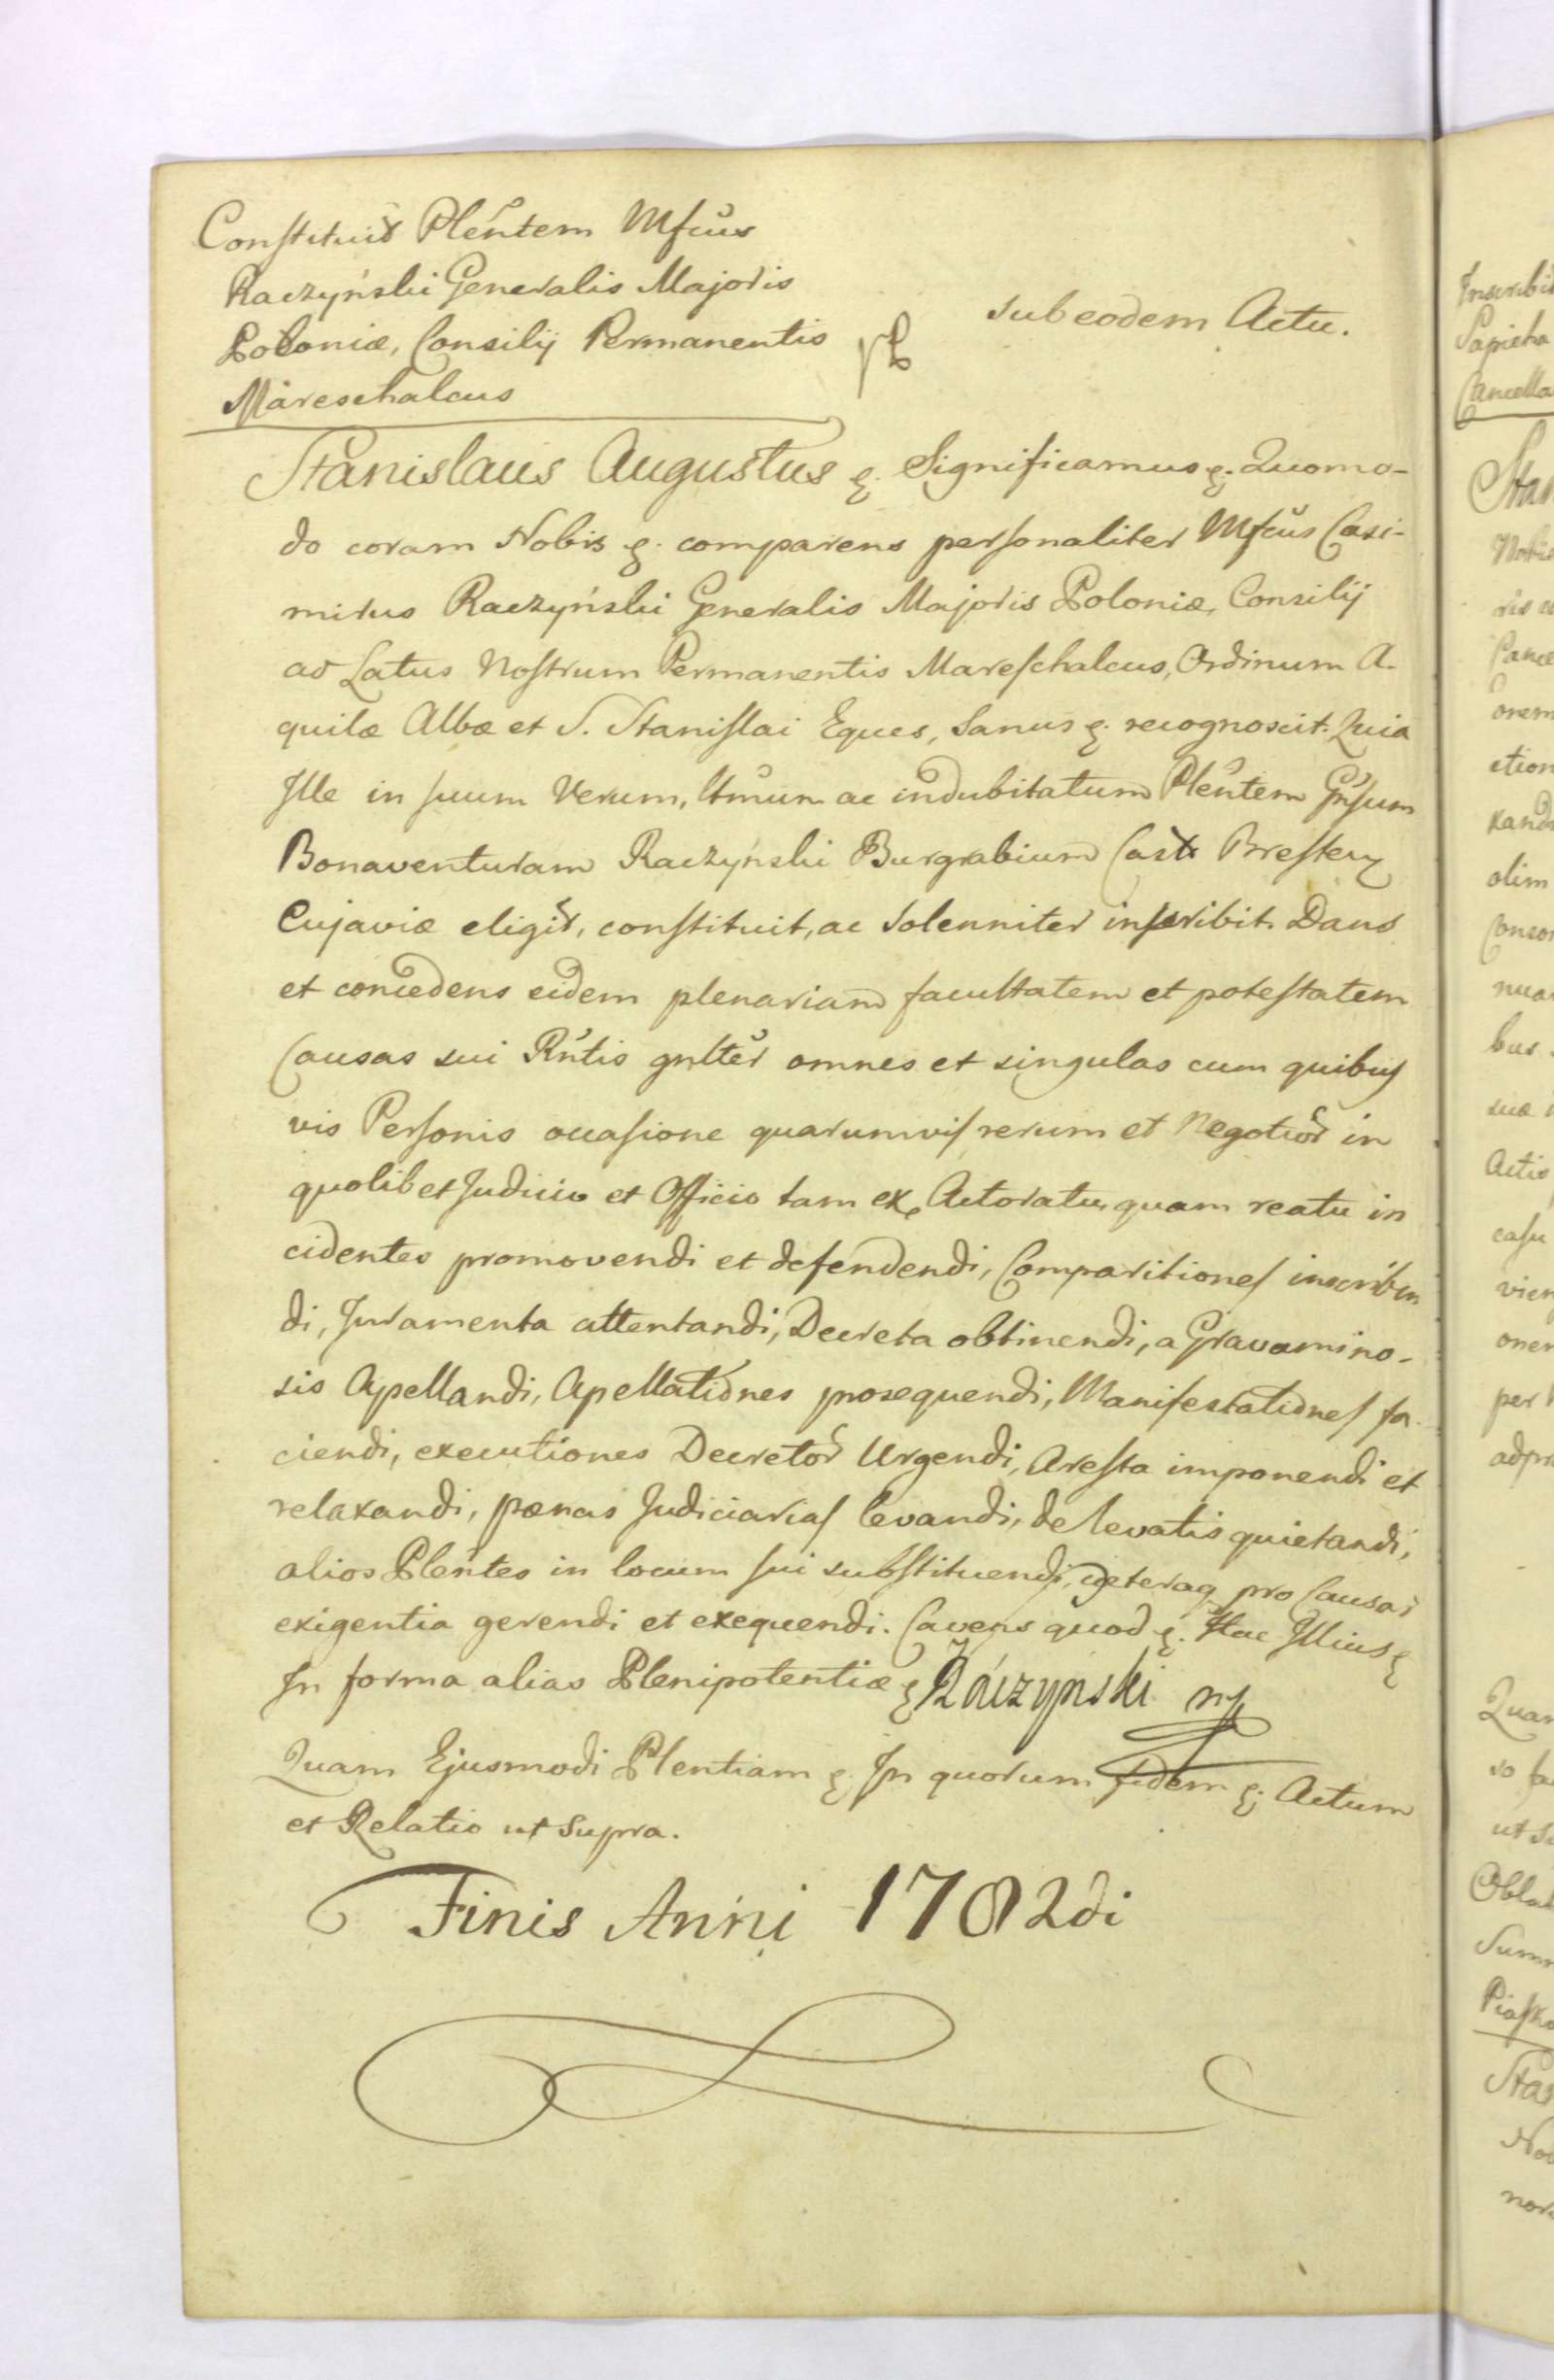 Constituit Plentem Mfcus
Raczyński Generalis Majoris
Poloniæ, Consilij Permanentis
Mareschalcus
sub eodem Actu.
Stanislaus Augustus &. Significamus &. Quomo-
do coram Nobis &. comparens personaliter Mfcus Casi-
mirus Raczyński Generalis Majoris Poloniæ, Consilij
ad Latus Nostrum Permanentis Mareschalcus, Ordinum A-
quilæ Albæ et S. Stanislai Eques, Sanus &. recognoscit. Quia
Ille in suum Verum, ltmum ac indubitatum Plentem Gnsum
Bonaventuram Raczyński Burgrabium Castr Bresten
Cujaviæ eligit, constituit, ac solenniter inscribit. Dans
et concedens eidem plenariam facultatem et potestatem
Causas sui Rntis gnlter omnes et singulas cum quibus
vis Personis occasione quarumvis rerum et Negotior in
quolibet Judicio et Officio tam ex Actoratu, quam reatu in
cidentes promovendi et defendendi, Comparitiones inscriben
di, Juramenta attentandi, Decreta obtinendi, a Gravamino-
sis Apellandi, Apellationes prosequendi, Manifestationes fa-
ciendi, executiones Decretor Urgendi, Aresta imponendi et
relaxandi, pænas Judiciarias levandi, de levatis quietandi,
alios Plentes in locum sui substituendi, cæteraq pro Causar
exigentia gerendi et exequendi. Cavens quod &. Hac Illius &
In forma alias Plenipotentiæ & Raczynski
Quam Ejusmodi Plentiam &. In quorum fidem &. Actum
et Relatio ut supra.
Finis Anni 1782di
Inscribit
Sapieha
Cancella
Stan
Nobis
etion
xandr
olim
nuo
bus
suæ
Actis
casu
per
Quam
ut su
Oblat
Sum
Piasko
Stan